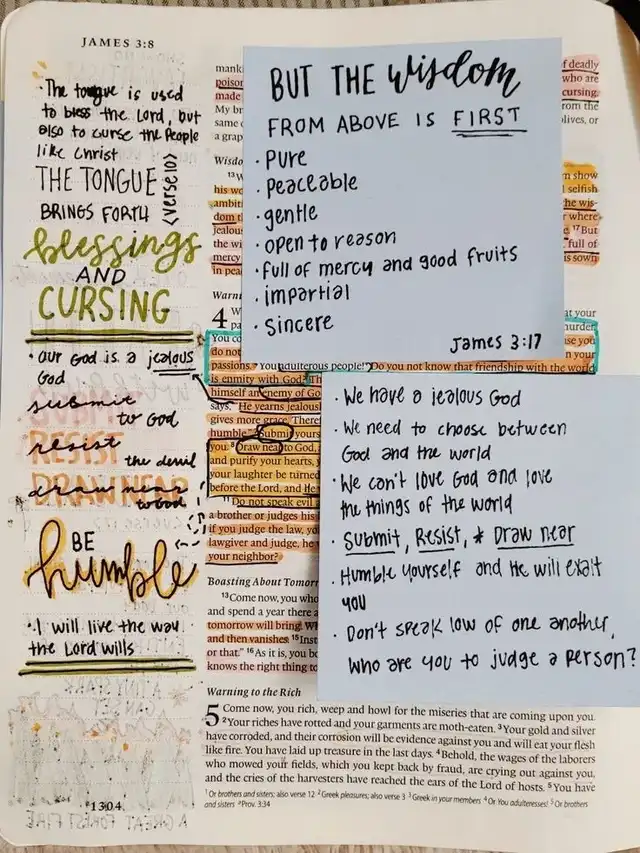 JAMES 3:8
• The tongue is used
to bless the Lord, but
also to curse the People
like Christ
THE TONGUE
BRINGS FORTH
<verse 10>
blessings
AND
CURSING
• our God is a jealous
God
submit
to God
RESIST
resist
the devil
DRAW NEAR
draw near
to God
BE
humble
• I will live the way
the Lord wills
1304
BUT THE wisdom
FROM ABOVE IS FIRST
• Pure
• Peaceable
• gentle
• open to reason
• full of mercy and good fruits
• impartial
• Sincere
James 3:17
• We have a jealous God
• We need to choose between
God and the world
• We can't love God and love
the things of the world
• Submit, Resist, * Draw near
• Humble yourself and He will exalt
you
• Don't speak low of one another,
who are you to judge a person?
manki
poison
made
My br
same
a grap
of deadly
who are
cursing.
from the
olives, or
Wisdo
13 W
his we
ambiti
dom t
jealous
the wi
mercy
in peac
show
selfish
the wis-
where
17 But
full of
is sown
Warni
4 W
pa
You co
do not
passions. You adulterous people! Do you not know that friendship with the world
is enmity with God?
himself an enemy of God
says, "He yearns jealous
gives more grace. There
humble." Submit yours
you. 8 Draw near to God,
and purify your hearts, y
your laughter be turned
before the Lord, and He
11 Do not speak evil
a brother or judges his
if you judge the law, yo
lawgiver and judge, he
your neighbor?
at your
murder
n your
Boasting About Tomorr
13 Come now, you who
and spend a year there a
tomorrow will bring. Wh
and then vanishes. 15 Inst
or that." 16 As it is, you b
knows the right thing to
Warning to the Rich
5 Come now, you rich, weep and howl for the miseries that are coming upon you.
2 Your riches have rotted and your garments are moth-eaten. 3 Your gold and silver
have corroded, and their corrosion will be evidence against you and will eat your flesh
like fire. You have laid up treasure in the last days. 4 Behold, the wages of the laborers
who mowed your fields, which you kept back by fraud, are crying out against you,
and the cries of the harvesters have reached the ears of the Lord of hosts. 5 You have
1 Or brothers and sisters; also verse 12 2 Greek pleasures; also verse 3 3 Greek in your members 4 Or You adulteresses! 5 Or brothers
and sisters 6 Prov. 3:34